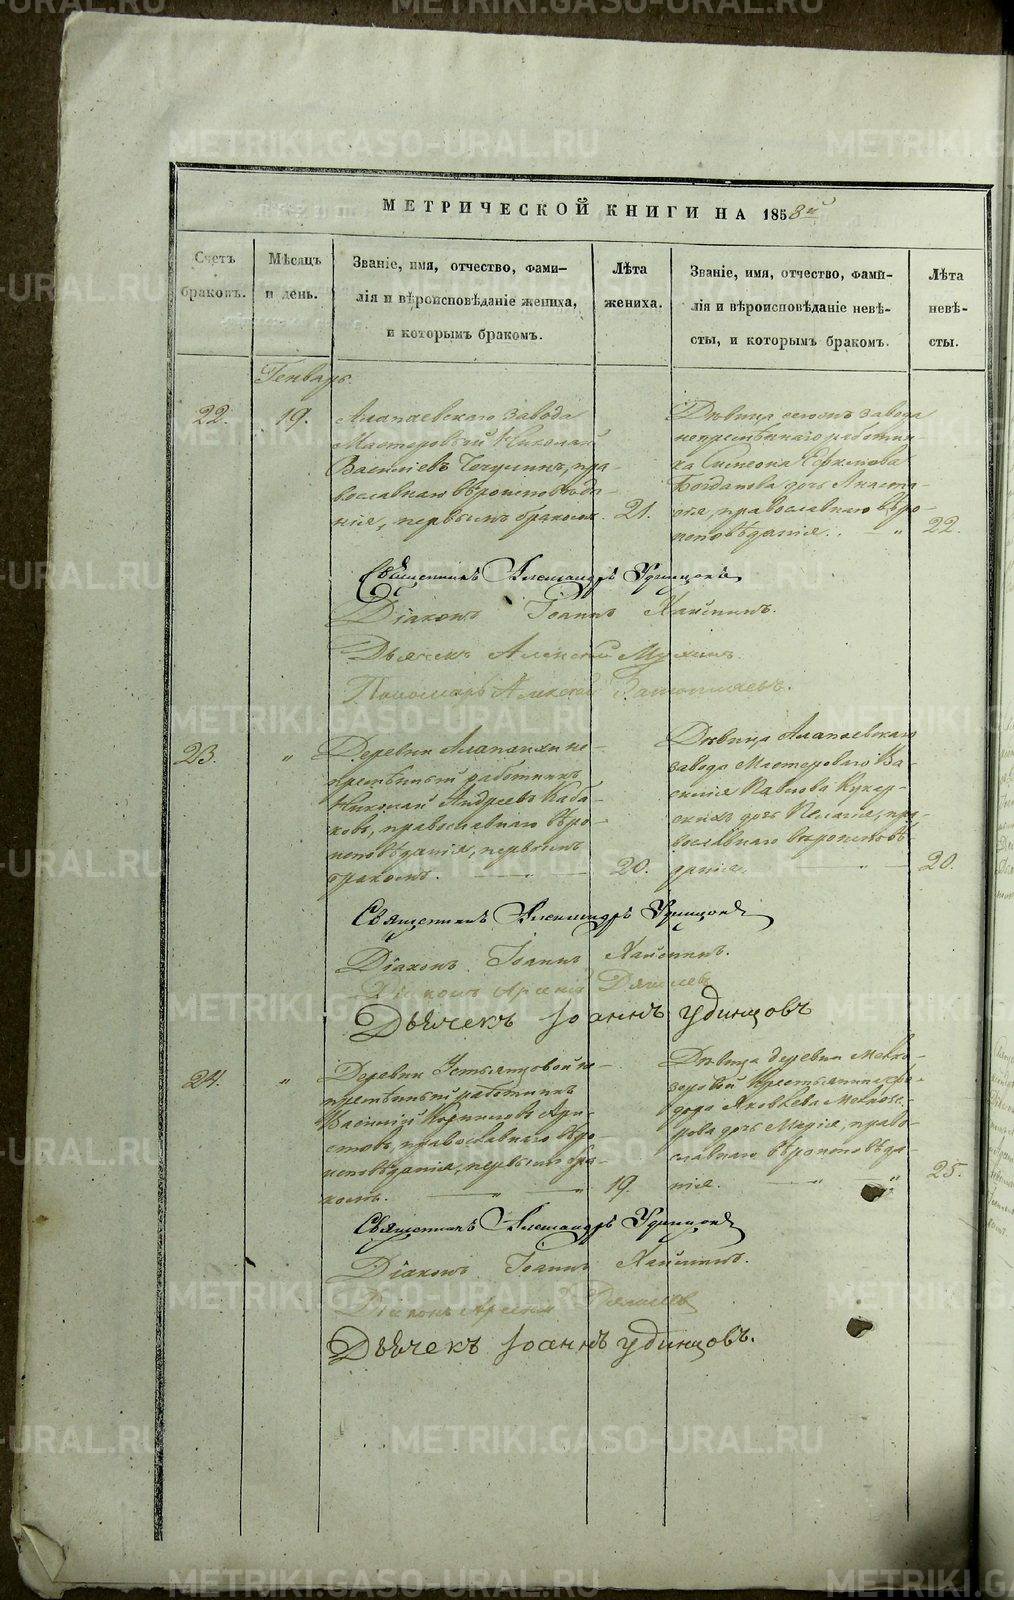 МЕТРИЧЕСКОЙ КНИГИ НА 1858й
Счетъ браковъ.
Мѣсяцъ и день.
Званіе, имя, отчество, фами-
лія и вѣроисповѣданіе жениха,
и которымъ бракомъ.
Лѣта жениха.
Званіе, имя, отчество, фами-
лія и вѣроисповѣданіе невѣ-
сты, и которымъ бракомъ.
Лѣта невѣ-
сты.
Генварь.
22.
19.
Алапаевскаго завода
Мастеровый Николай
Василіевъ пра-
вославнаго вѣроисповѣда-
нія, первымъ бракомъ.
21.
Дѣвица сегожъ завода
непремѣннаго работни-
ка Симеона Ефимова
Богданова дочь Анаста-
сія, православнаго вѣро-
исповѣданія.
22.
Священникъ Александръ Удинцовъ
Діаконъ Іоаннъ
Дьячекъ Алексей
Пономарь Алексей
23.
"
Деревни Алапаихи не-
премѣнный работникъ
Николай Андреевъ Каба-
ковъ, православнаго вѣро-
исповѣданія, первымъ
бракомъ.
20.
Дѣвица Алапаевскаго
завода Мастероваго Ва-
силія Павлова Кукар-
скихъ дочь Пелагія, пра-
вославнаго вѣроисповѣ-
данія.
20.
Священникъ Александръ Удинцовъ
Діаконъ Іоаннъ
Діаконъ Арсеній
Дьячекъ Іоаннъ Удинцовъ
24.
"
Деревни Устьянцовой не-
премѣнный работникъ
Василій Корниловъ Ари-
стовъ, православнаго вѣро-
исповѣданія, первымъ бра-
комъ.
19.
Дѣвица деревни Мелко-
зеровой Крестьянина Фе-
дора Яковлева Мелкозе-
рова дочь Марія, право-
славнаго вѣроисповѣда-
нія.
25.
Священникъ Александръ Удинцовъ
Діаконъ Іоаннъ
Діаконъ Арсеній
Дьячекъ Іоаннъ Удинцовъ.
METRIKI.GASO-URAL.RU